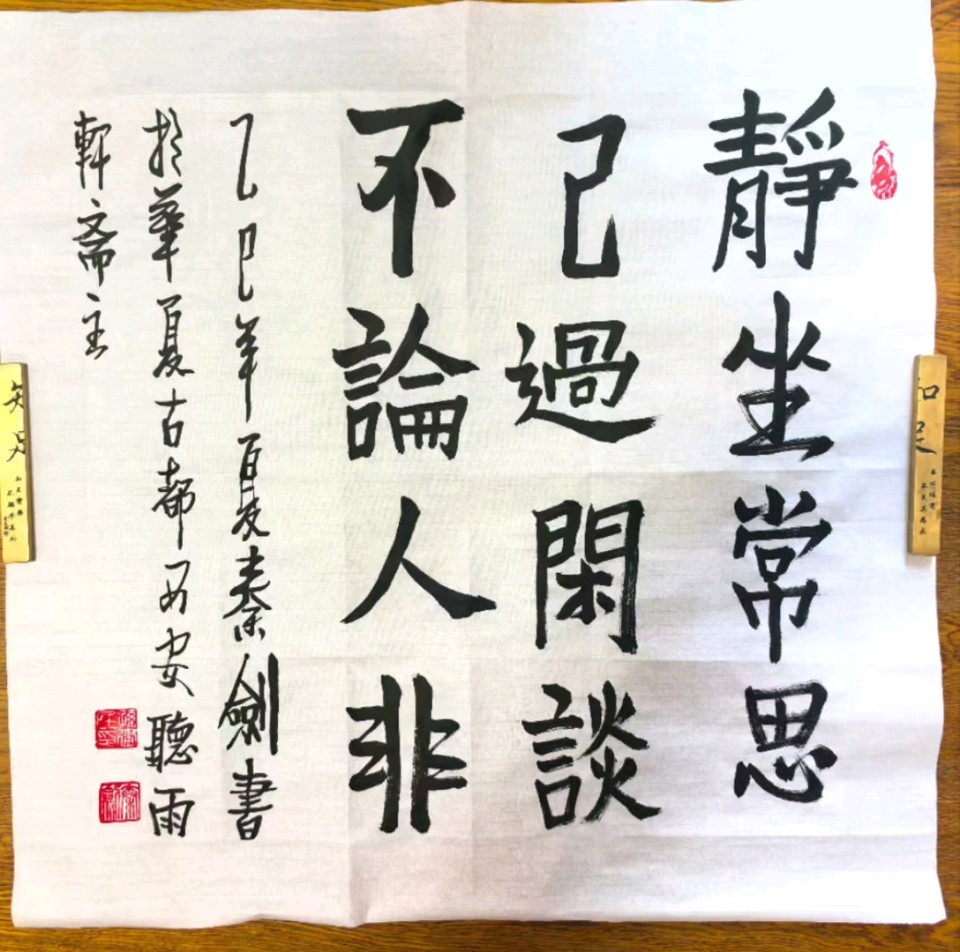 靜坐常思
己過閑談
不論人非
乙巳年夏秦劍書
於華夏古都西安聽雨
軒斋主
知足
知足